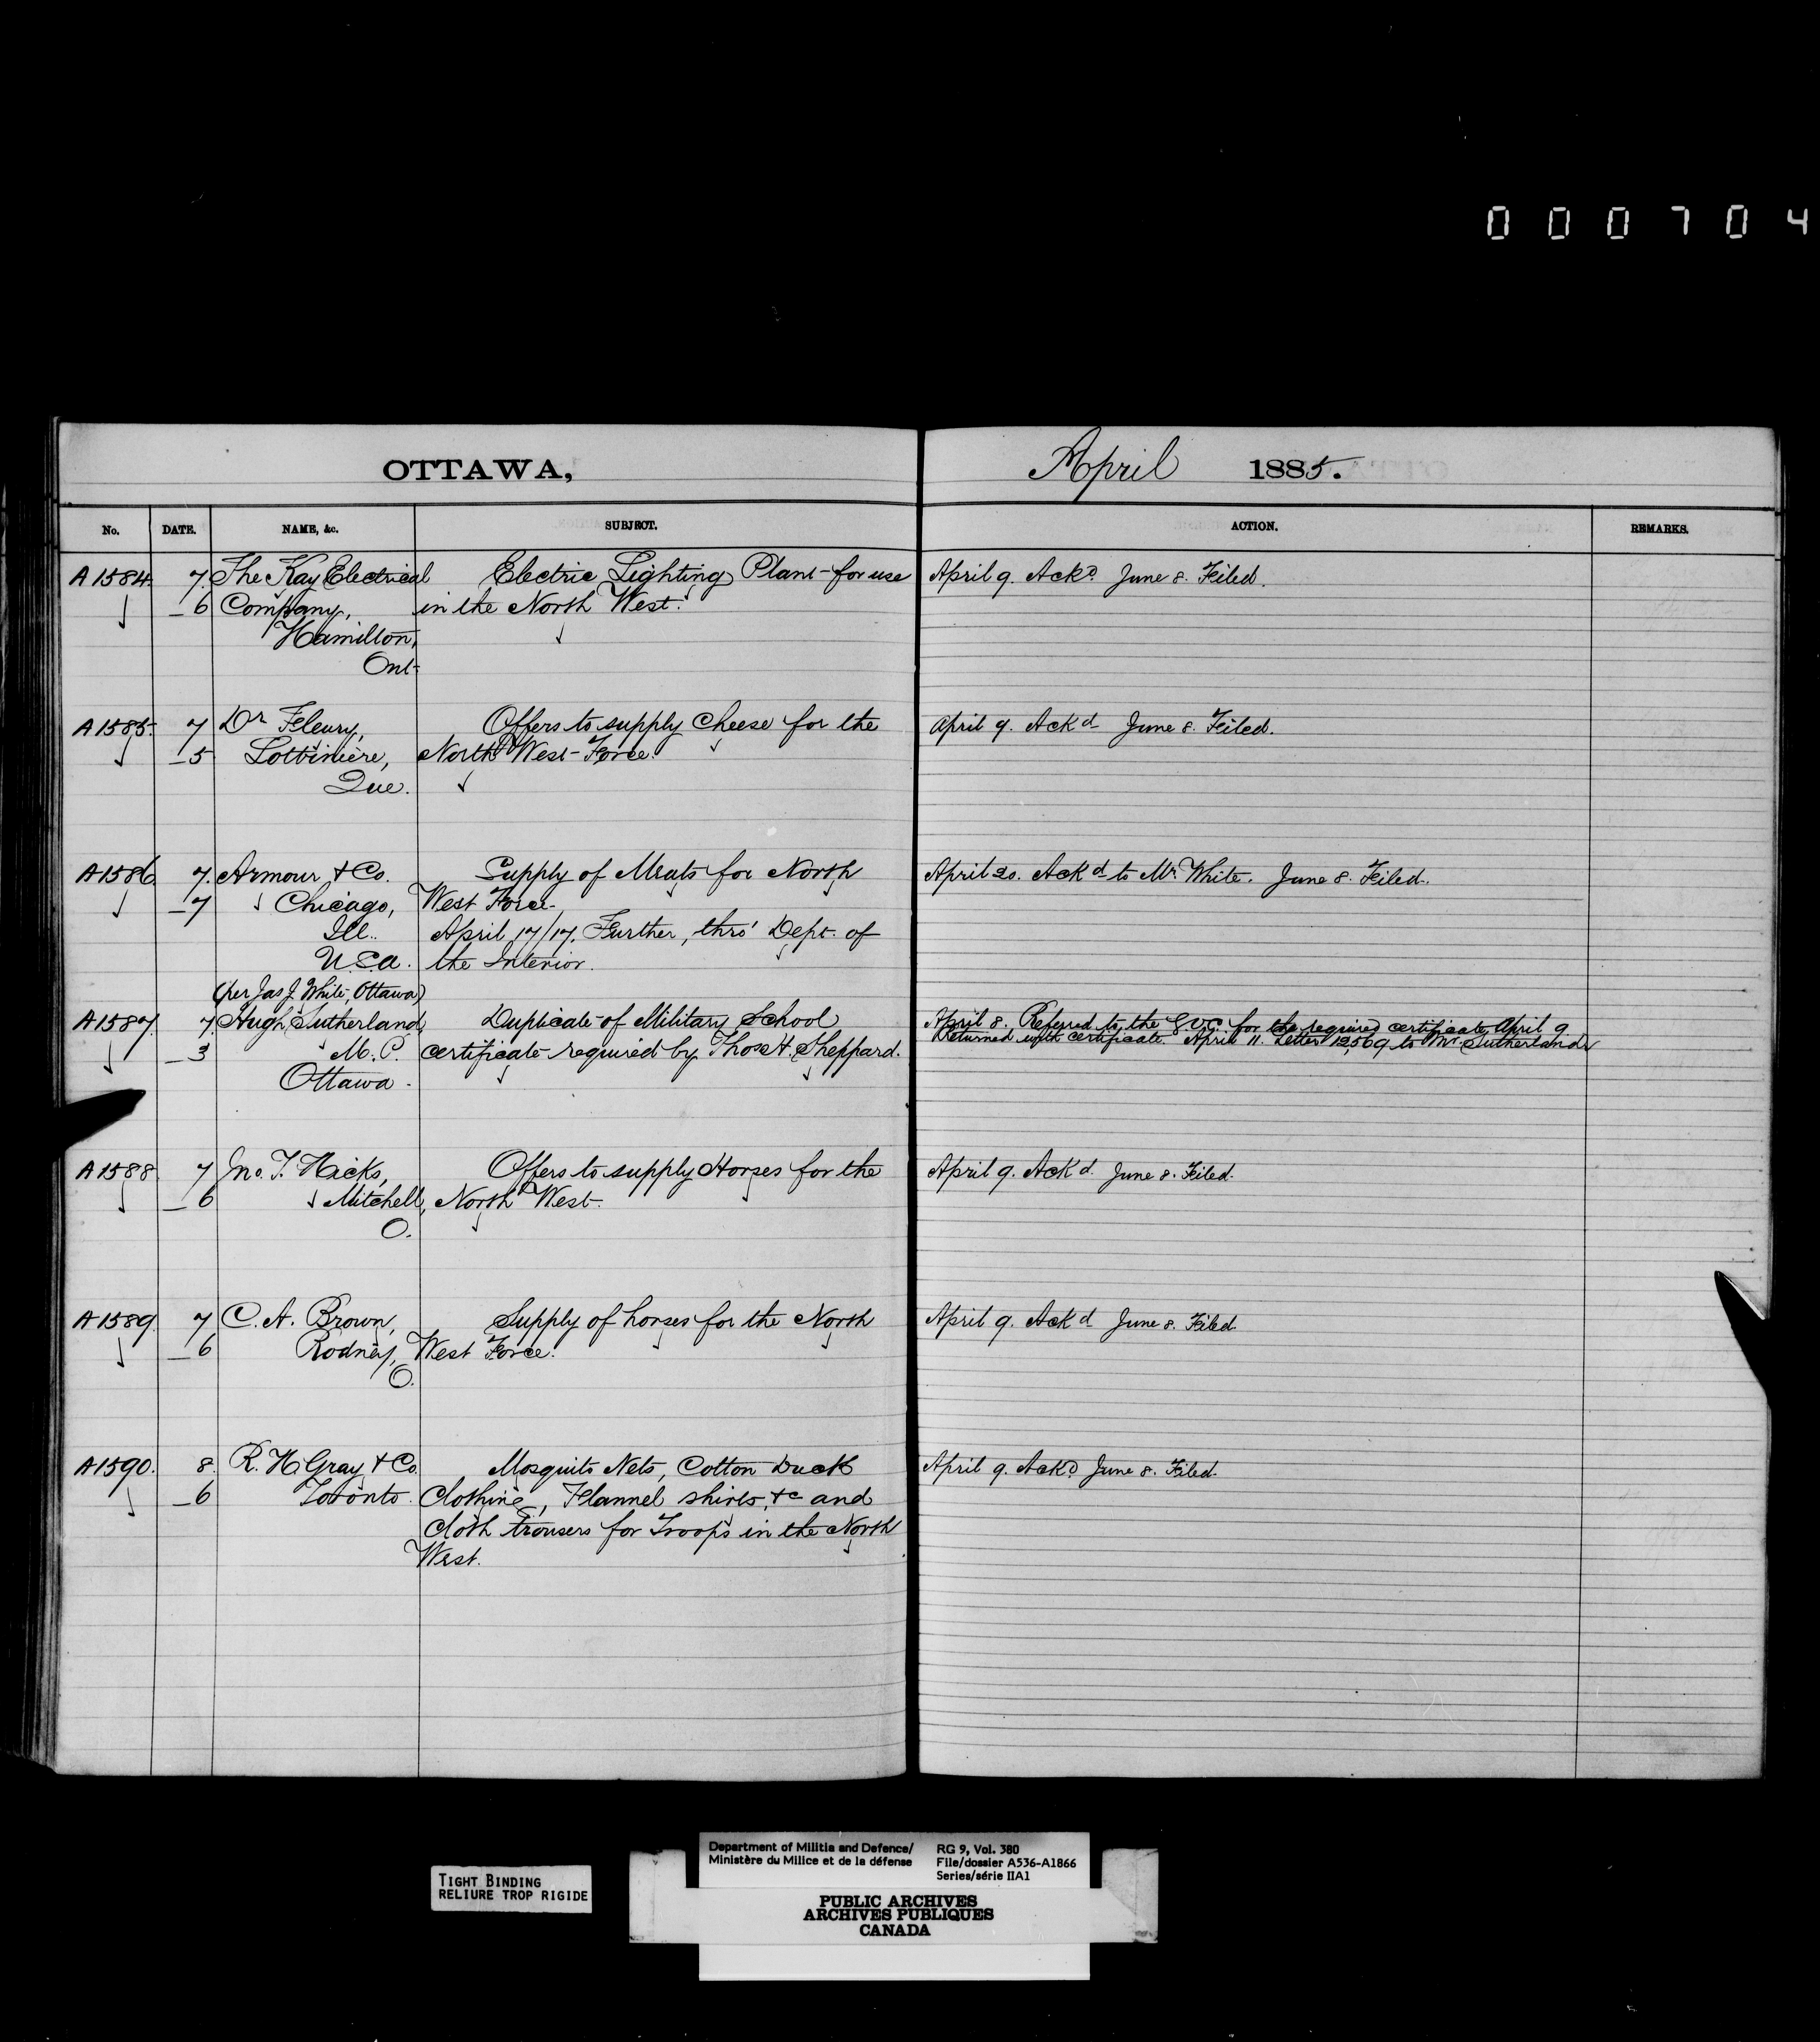 000704
OTTAWA, April 1885.
No. DATE. NAME, &c. SUBJECT. ACTION. REMARKS.
A1584 7. The Kay Electrical Electric Lighting Plant for use April 9. Ackd. June 8. Filed.
6 Company, in the North West.
Hamilton,
Ont
A1585 7 Dr Fleury, Offers to supply Cheese for the April 9. Ackd June 8. Filed.
5 Lotbiniere, North West Force.
Que.
A1586 7. Armour & Co. Supply of Meats for North April 20. Ackd to Mr. White. June 8. Filed.
7 Chicago, West Force.
Ill. April 17/17. Further, thro' Dept. of
U.S.A. the Interior.
(per Jas J. White, Ottawa)
A1587. 7. Hugh Sutherland, Duplicate of Military School April 8. Referred to the for the required certificate April 9.
3 M.P. certificate required by Thos H. Sheppard. Returned with certificate April 11. Letter 12,569 to Mr. Sutherland
Ottawa.
A1588 7 Jno. T. Hicks, Offers to supply Horses for the April 9. Ackd. June 8. Filed.
6 Mitchell, North West.
O.
A1589 7 C. A. Brown, Supply of horses for the North April 9. Ackd June 8. Filed.
6 Rodney, West Force.
O.
A1590. 8. R. H. Gray & Co. Mosquito Nets, Cotton Duck April 9. Ackd June 8. Filed.
6 Toronto. Clothing, Flannel shirts, &c and
cloth trousers for Troops in the North
West.
TIGHT BINDING
RELIURE TROP RIGIDE
Department of Militia and Defence/ RG 9, Vol. 380
Ministère du Milice et de la défense File/dossier A536-A1866
Series/série IIA1
PUBLIC ARCHIVES
ARCHIVES PUBLIQUES
CANADA